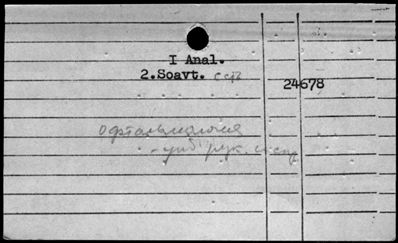 I Anal.
2.Soavt. с стр
24678
Офтальмология
- учеб. рук. и спец